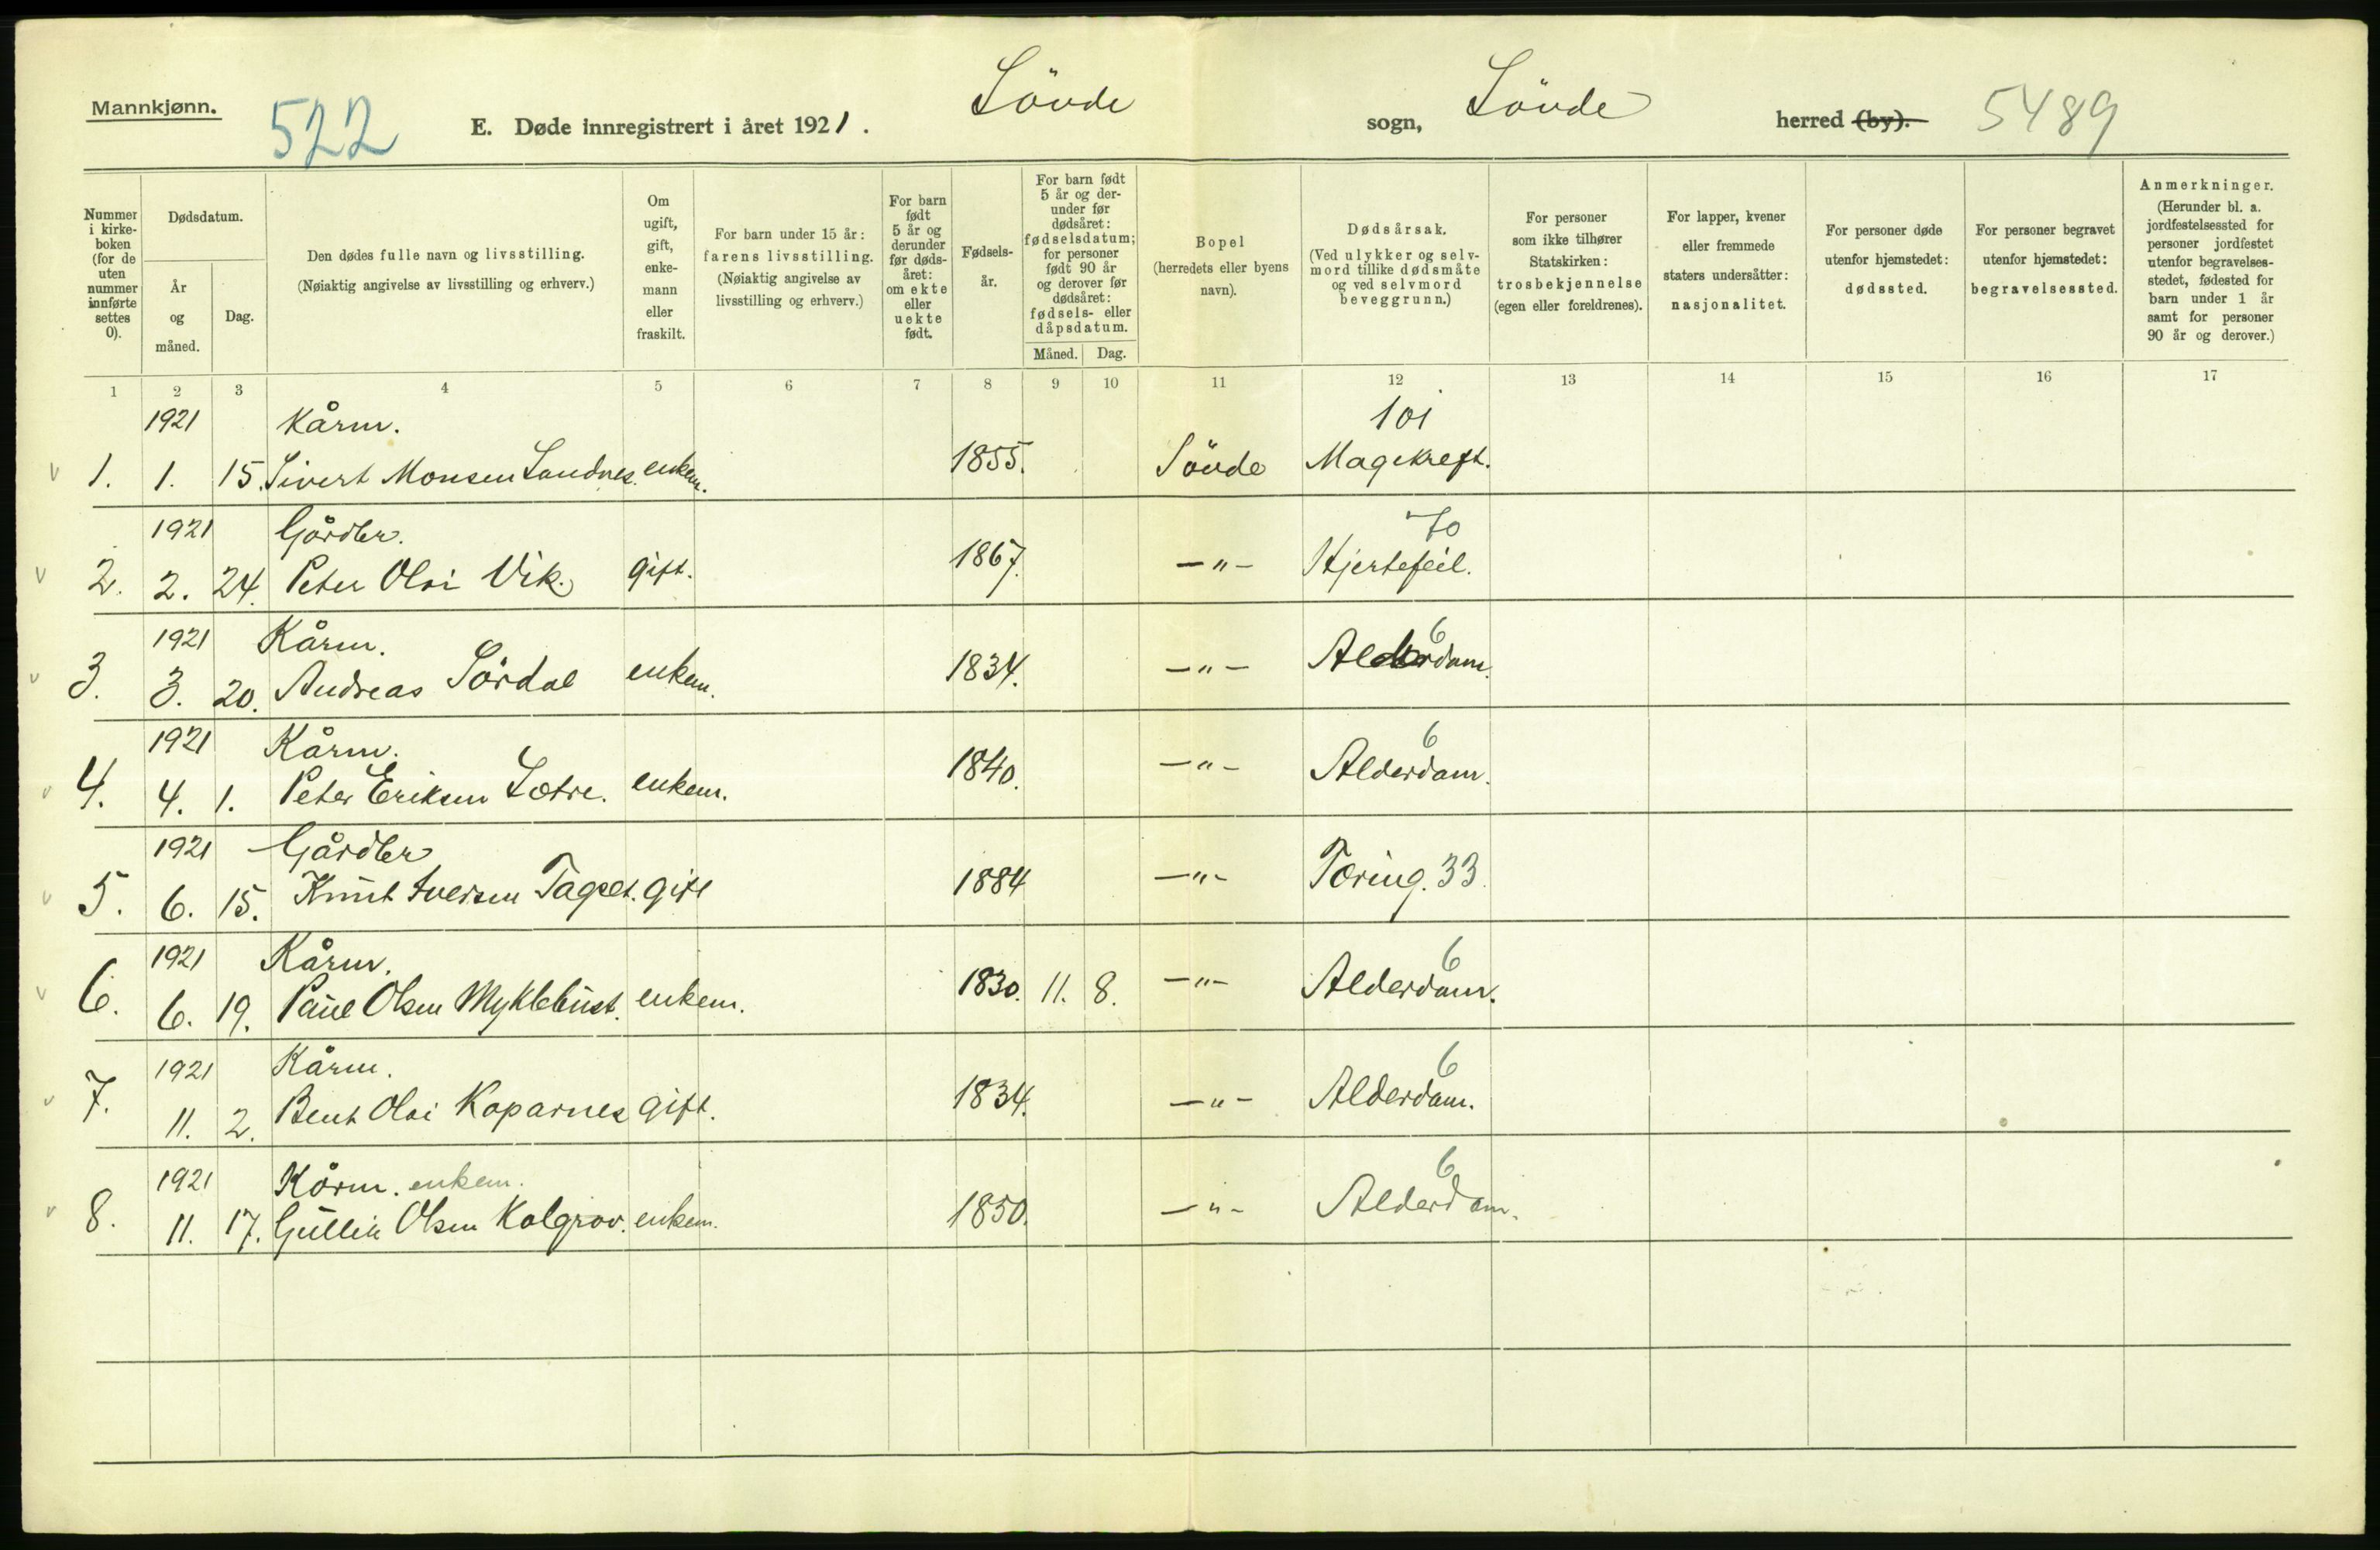 Mannkjønn.
522
E. Døde innregistrert i året 1921.
Söude
sogn,
Söude
herred (by).
5489
Nummer i kirke-boken (for de uten nummer innførte settes 0).
Dødsdatum.
År og måned.
Dag.
Den dødes fulle navn og livsstilling.
(Nøiaktig angivelse av livsstilling og erhverv.)
Om ugift, gift, enke-mann eller fraskilt.
For barn under 15 år: farens livsstilling.
(Nøiaktig angivelse av livsstilling og erhverv.)
For barn født 5 år og derunder før døds-året: om ekte eller uekte født.
Fødsels-år.
For barn født 5 år og der-under før dødsåret: fødselsdatum; for personer født 90 år og derover før dødsåret: fødsels- eller dåpsdatum.
Måned.
Dag.
Bopel
(herredets eller byens navn).
Dødsårsak.
(Ved ulykker og selv-mord tillike dødsmåte og ved selvmord beveggrunn.)
For personer som ikke tilhører Statskirken: trosbekjennelse (egen eller foreldrenes).
For lapper, kvener eller fremmede staters undersåtter: nasjonalitet.
For personer døde utenfor hjemstedet: dødssted.
For personer begravet utenfor hjemstedet: begravelsessted.
Anmerkninger.
(Herunder bl. a. jordfestelsessted for personer jordfestet utenfor begravelses-stedet, fødested for barn under 1 år samt for personer 90 år og derover.)
1 2 3 4 5 6 7 8 9 10 11 12 13 14 15 16 17
1921 Kårm. 101
v 1. 1. 15. Sivert Monsen Sandnes. enkem. 1855. Söude Magekreft.
1921 Gårdbr. 70
v 2. 2. 24. Peter Olai Vik. gift. 1867. —"— Hjertefeil.
1921 Kårm. 6
v 3. 3. 20. Andreas Sördal enkem. 1834. —"— Alderdom.
1921 Kårm. 6
v 4. 4. 1. Peter Eriksen Sætre. enkem. 1840. —"— Alderdom.
1921 Gårdbr
v 5. 6. 15. Knut Iversen gift 1884 —"— Tæring. 33.
1921 Kårm. 6
v 6. 6. 19. Paul Olsen Myklebust. enkem. 1830. 11. 8. —"— Alderdom.
1921 Kårm. 6
v 7. 11. 2. Bent Olai Koparnes gift. 1834. —"— Alderdom.
1921 Kårm. enkem. 6
v 8. 11. 17. Gullik Olsen Kalgrav. enkem. 1850. —"— Alderdom.